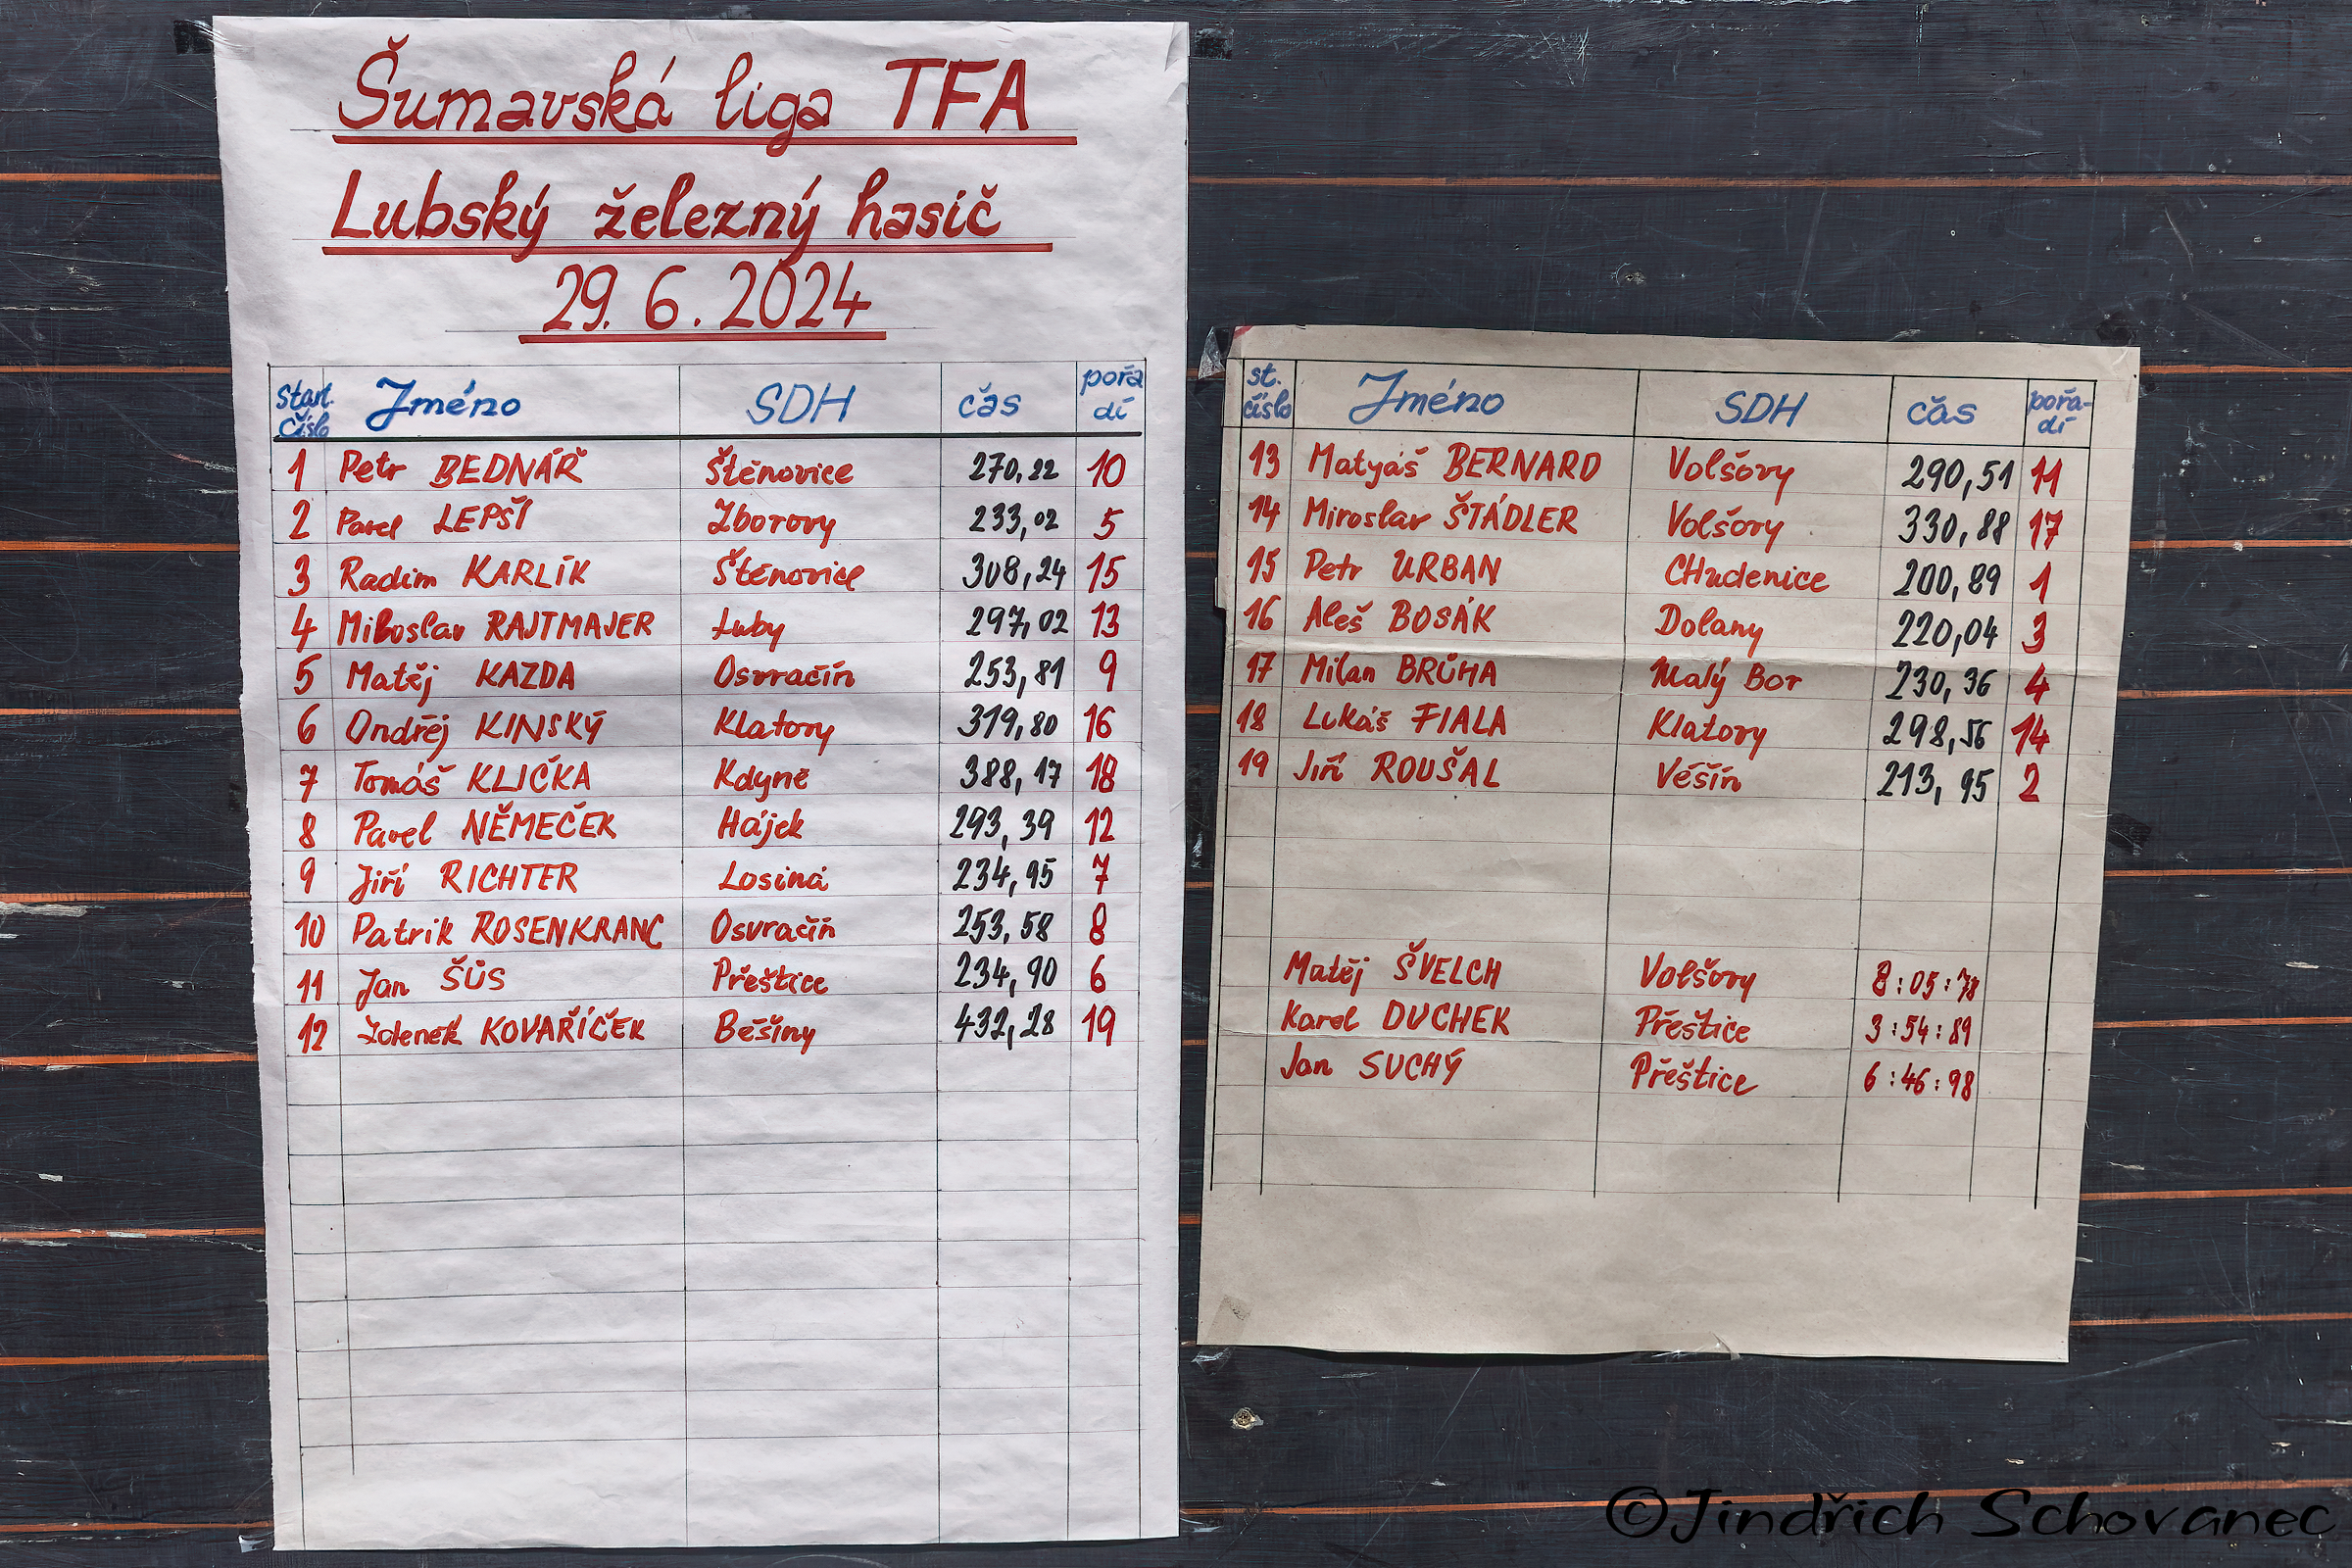 Šumavská liga TFA
Lubský železný hasič
29. 6. 2024
Start. číslo Jméno SDH čas pořadí
1 Petr BEDNÁŘ Štěnovice 270,22 10
2 Pavel LEPŠÍ Zborovy 233,02 5
3 Radim KARLÍK Štěnovice 308,24 15
4 Miloslav RAJTMAJER Luby 297,02 13
5 Matěj KAZDA Osvračín 253,81 9
6 Ondřěj KINSKÝ Klatovy 319,80 16
7 Tomáš KLIČKA Kdyně 388,17 18
8 Pavel NĚMEČEK Hájek 293,39 12
9 Jiří RICHTER Losiná 234,95 7
10 Patrik ROSENKRANC Osvračín 253,58 8
11 Jan ŠŮS Přeštice 234,90 6
12 Zdeněk KOVAŘÍČEK Běšiny 432,28 19
st. číslo Jméno SDH čas pořa-dí
13 Matyáš BERNARD Volšovy 290,51 11
14 Miroslav ŠTÁDLER Volšovy 330,88 17
15 Petr URBAN CHudenice 200,89 1
16 Aleš BOSÁK Dolany 220,04 3
17 Milan BRŮHA Malý Bor 230,36 4
18 Lukáš FIALA Klatovy 298,56 14
19 Jiří ROUŠAL Věšín 213,95 2
Matěj ŠVELCH Volšovy 8:05:78
Karel DUCHEK Přeštice 3:54:89
Jan SUCHÝ Přeštice 6:46:98
©Jindřich Schovanec